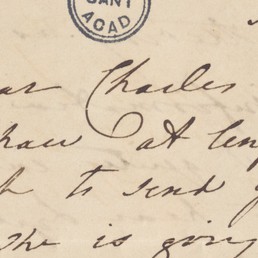 CANT
ACAD
ar Charles
at len
to send
she is going